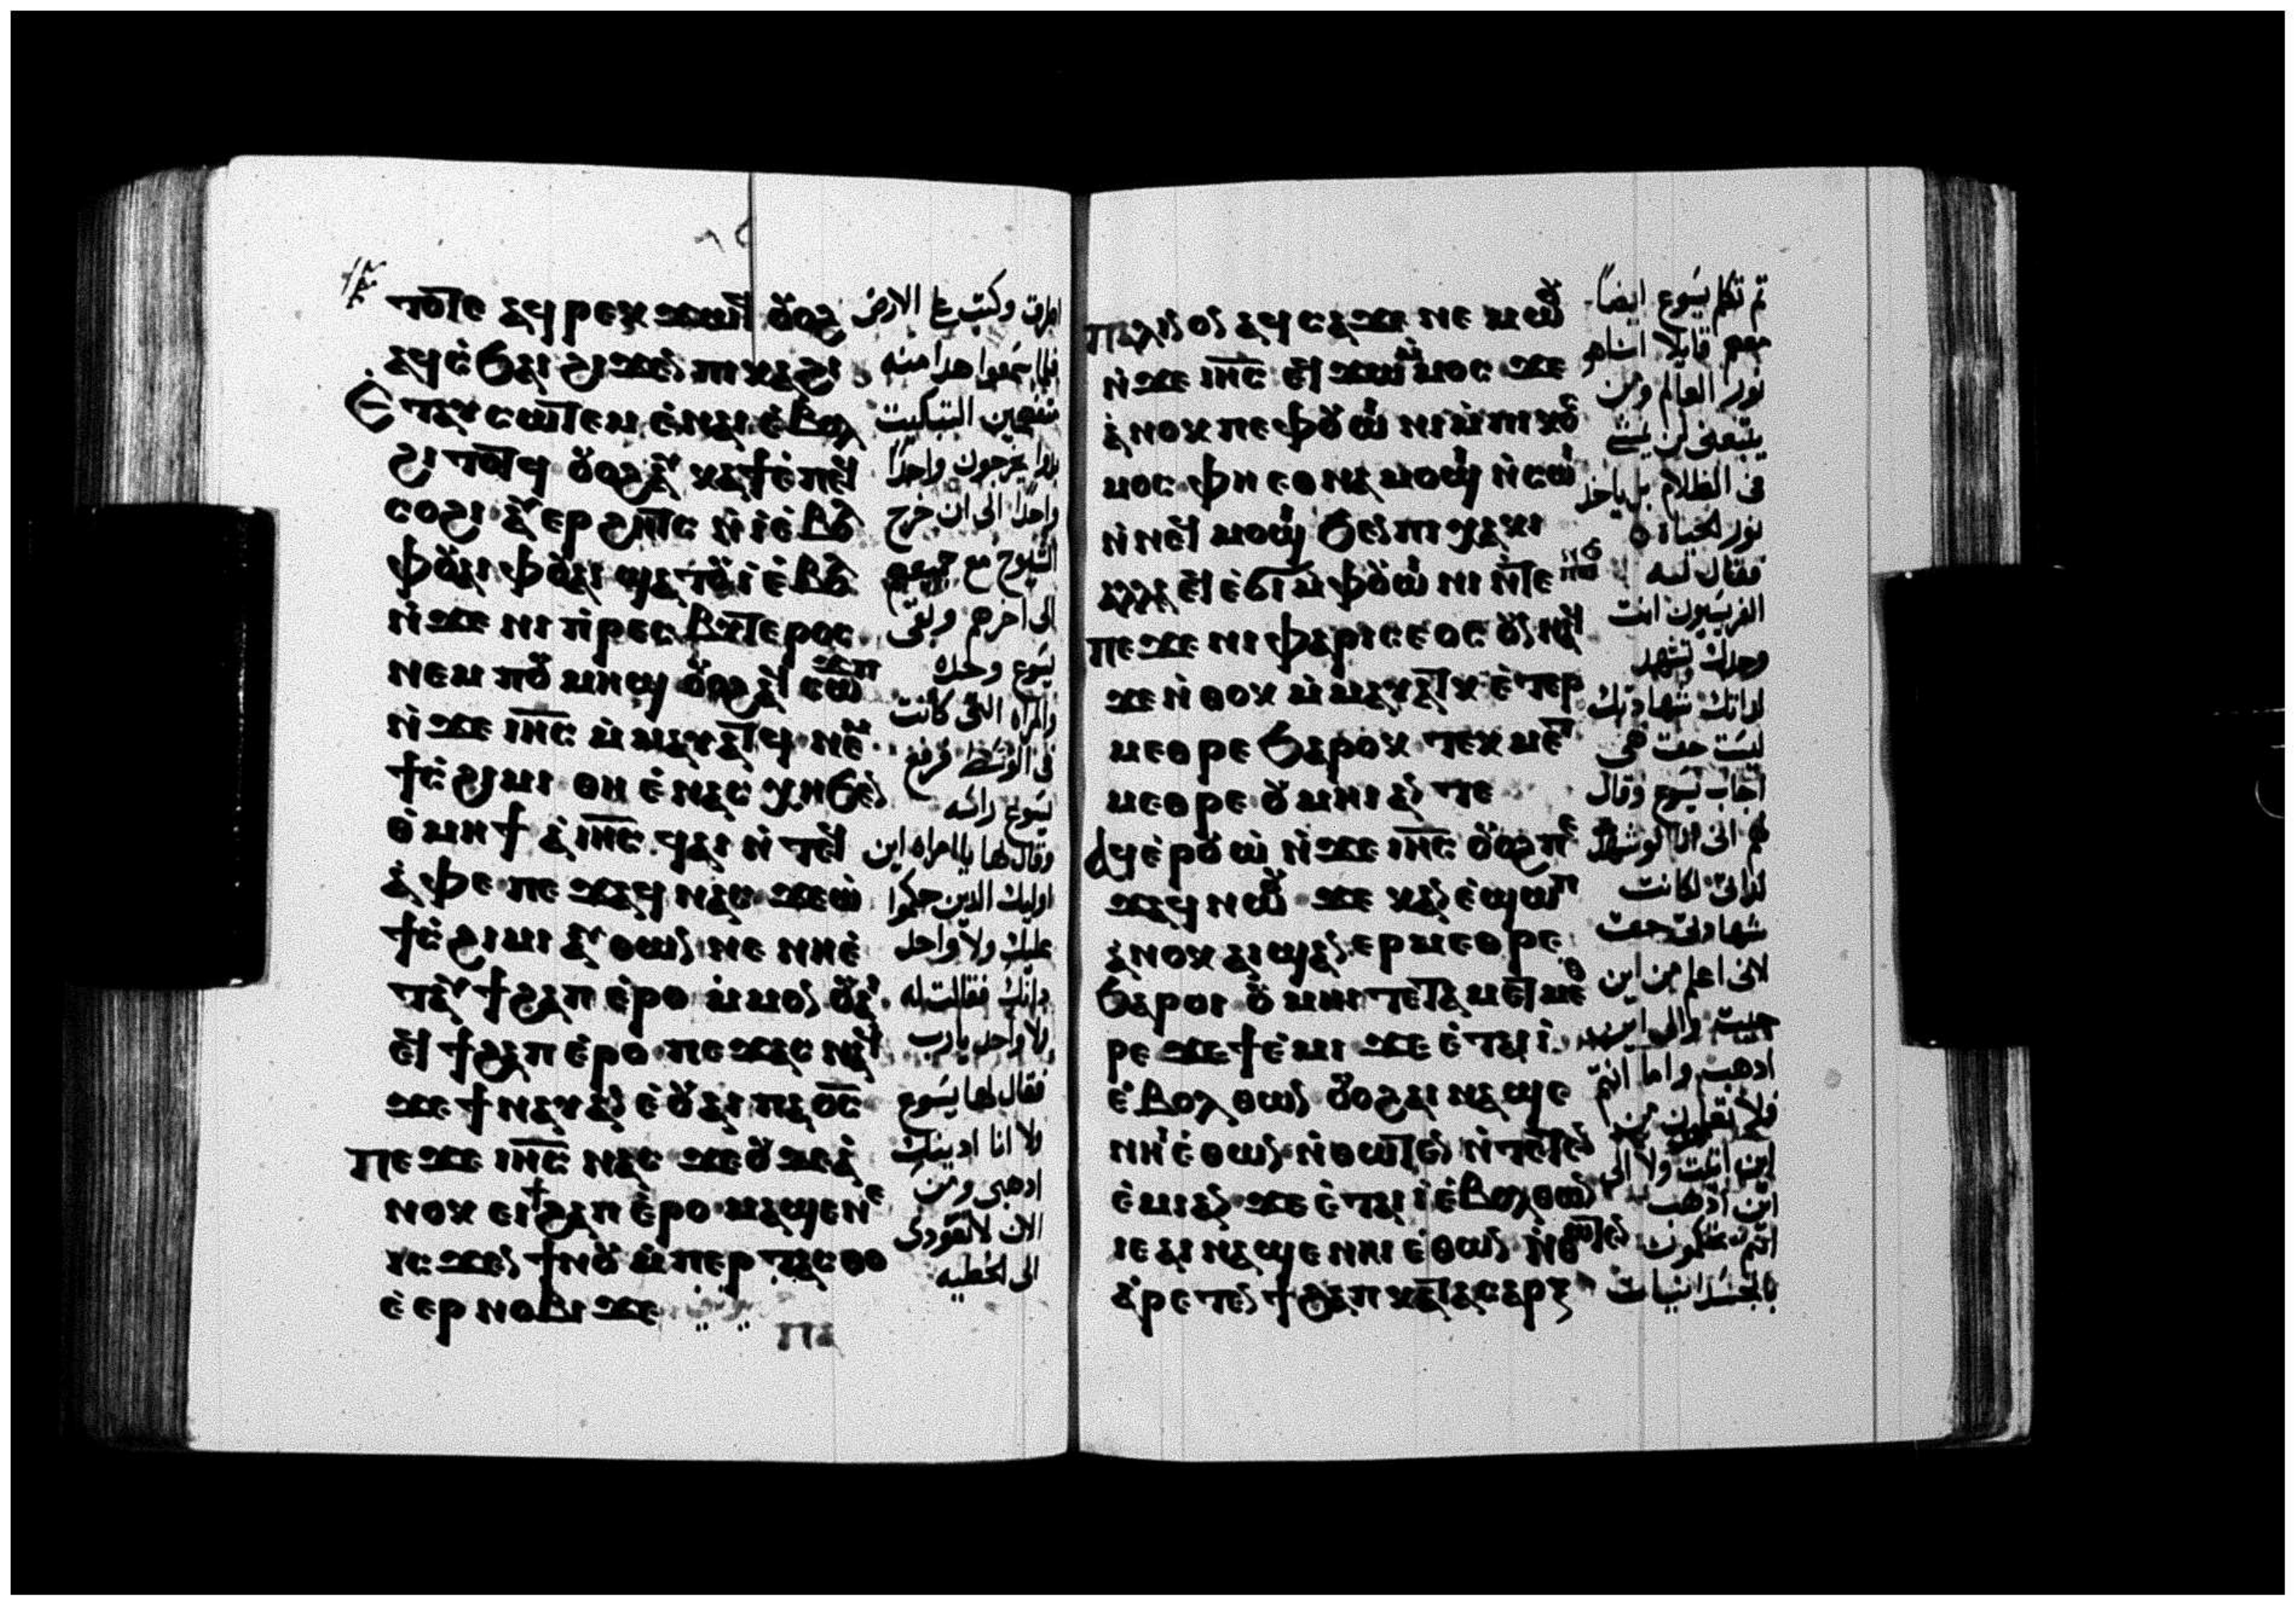 ⲧⲟⲧⲉ ⲁϥⲣⲉⲕ ϫⲱϥ ⲟⲩⲟϩ
ⲁϥⲥϧⲁⲓ ϩⲓϫⲉⲛ ⲡⲓⲕⲁϩⲓ
ⲉⲧⲁⲩⲥⲱⲧⲉⲙ ⲉⲛⲁⲓ ⲉⲃⲟⲗ
ϩⲓⲧⲟⲧϥ ⲟⲩⲟϩ
ⲥⲟϩⲓ ⲁⲩⲉⲣϩⲏⲧⲥ ⲛⲓ ⲉⲃⲟⲗ
ⲫⲟⲩⲁⲓ ⲫⲟⲩⲁⲓ ϣⲁⲧⲟⲩⲓ ⲉⲃⲟⲗ
ⲛϫⲉ ⲛⲓⲡⲣⲉⲥⲃⲩⲧⲉⲣⲟⲥ
ⲛⲉⲙ ⲡⲟⲩⲙⲏϣ ⲟⲩⲟϩ ⲁϥⲥⲱϫⲡ
ⲛϫⲉ ⲓⲏⲥ ⲙⲙⲁⲩⲁⲧϥ ⲛⲉⲙ
ϯⲥϩⲓⲙⲓ ⲑⲏ ⲉⲛⲁⲥⲭⲏ ϧⲉⲛ
ⲑⲙⲏϯ ⲁ ⲓⲏⲥ ϥⲁⲓ ⲛⲧⲉϥ
ⲁⲫⲉ ⲡⲉϫⲁϥ ⲛⲁⲥ ϫⲉ ⲱ
ϯⲥϩⲓⲙⲓ ⲁⲩⲑⲱⲛ ⲛⲉ ⲛⲏⲉ
ⲧⲁⲩϯϩⲁⲡ ⲉⲣⲟ ⲙⲙⲟⲛ ⲟⲩⲁⲓ
ⲉϥϯϩⲁⲡ ⲉⲣⲟ ⲡⲉϫⲁⲥ ⲛⲁϥ
ϫⲉ ϯⲛⲁⲩ ⲁⲛ ⲉⲟⲩⲁⲓ ⲡⲁⲟⲥ
ⲡⲉϫⲉ ⲓⲏⲥ ⲛⲁⲥ ϫⲉ ⲟⲩϫⲉ ⲁ
ⲛⲟⲕ ⲉⲓϯϩⲁⲡ ⲉⲣⲟ ⲙⲁϣⲉⲛⲉ
ⲓⲥϫⲉⲛ ϯⲛⲟⲩ ⲙⲡⲉⲣⲧⲁⲥⲑⲟ
ⲉⲉⲣⲛⲟⲃⲓ ϫⲉ
ⲡⲁ
اطرق وكتب ع الارض
فلما سمعوا هذا منه
التبكيت
بدوا يخرجون واحدًا
واحدًا الى ان خرج
الشيوخ مع جميعهم
الى اخرهم وبقى
يسوع وحده
والمراه التى كانت
فى الوسط فرفع
يسوع راسه
وقال لها ياامراه اين
اوليك الذين حكموا
عليك ولا واحد
دانك فقالت له
ولا واحد يارب
فقال لها يسوع
ولا انا ادينك
ادهبى ومن
الان لا تعودى
الى الخطيه
ⲡⲁⲗⲓⲛ ⲟⲛ ⲁϥⲥⲁϫⲓ ⲛⲉⲙⲱⲟⲩ
ⲛϫⲉ ⲓⲏⲥ ⲉϥϫⲱ ⲙⲙⲟⲥ ϫⲉ
ⲁⲛⲟⲕ ⲡⲉ ⲫⲟⲩⲱⲓⲛⲓ ⲙⲡⲓⲕⲟⲥ
ⲙⲟⲥ ⲫⲏ ⲉⲑⲛⲁⲙⲟϣⲓ ⲛⲥⲱⲓ
ⲛⲛⲉϥⲙⲟϣⲓ ϧⲉⲛ ⲡⲓⲭⲁⲕⲓ
ⲁⲗⲗⲁ ⲉϥⲉϭⲓ ⲙⲫⲟⲩⲱⲓⲛⲓ ⲛⲧⲉ ⲡⲱⲛϧ
ⲡⲉϫⲉ ⲛⲓⲫⲁⲣⲓⲥⲉⲟⲥ ⲟⲩⲛ ⲛⲁϥ
ϫⲉ ⲛⲑⲟⲕ ⲙⲙⲁⲩⲁⲧⲕ ⲉⲧⲉⲣ
ⲙⲉⲑⲣⲉ ϧⲁⲣⲟⲕ ⲧⲉⲕⲙⲉⲧ
ⲙⲉⲑⲣⲉ ⲟⲩⲙⲏⲓ ⲁⲛ ⲧⲉ
ⲁϥⲉⲣⲟⲩⲱ ⲛϫⲉ ⲓⲏⲥ ⲟⲩⲟϩ ⲡⲉ
ϫⲁϥ ⲛⲱⲟⲩ ϫⲉ ⲕⲁⲛ ⲉϣⲱⲡ
ⲁⲛⲟⲕ ⲁⲓϣⲁⲛⲉⲣⲙⲉⲑⲣⲉ
ϧⲁⲣⲟⲓ ⲟⲩⲙⲏⲓ ⲧⲉ ⲧⲁⲙⲉⲧⲙⲉⲑ
ⲣⲉ ϫⲉ ϯⲉⲙⲓ ϫⲉ ⲉⲧⲁⲓⲓ
ⲉⲃⲟⲗ ⲑⲱⲛ ⲟⲩⲟϩ ⲁⲓⲛⲁϣⲉ
ⲛⲏⲓ ⲉⲑⲱⲛ ⲛⲑⲱⲧⲉⲛ ⲛⲧⲉⲧⲉⲛ
ⲉⲙⲓ ⲁⲛ ϫⲉ ⲉⲧⲁⲓⲓ ⲉⲃⲟⲗ ⲑⲱⲛ
ⲓⲉ ⲁⲓⲛⲁϣⲉ ⲛⲏⲓ ⲉⲑⲱⲛ ⲛⲑⲱⲧⲉⲛ
ⲁⲣⲉⲧⲉⲛϯϩⲁⲡ ⲕⲁⲧⲁ ⲥⲁⲣⲝ
ثم تكلم يسوع ايضاً
معهم قايلا انا هو
نور العالم ومن
يتبعنى لن يمشى
فى الظلام بل ياخذ
نور الحياه
فقال له
الفريسيون انت
وحدك تشهد
لذاتك شهادتك
ليست حق هى
اجاب يسوع وقال
لهم انى اذا كنت اشهد
لذاتى لكانت
شهادتى حق
لانى اعلم من اين
جيت والى اين
ادهب واما انتم
فلا تعلمون من
اين اتيت ولا الى
اين ادهب
انتم تحكمون